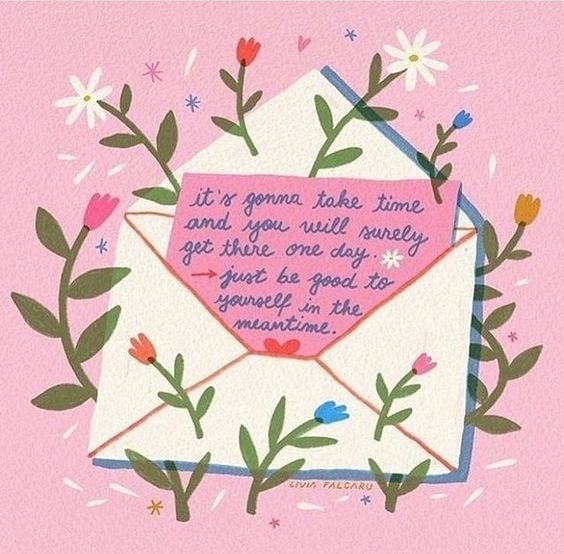 it's gonna take time
and you will surely
get there one day.
→ just be good to
yourself in the
meantime.
LIVIA FALCARU